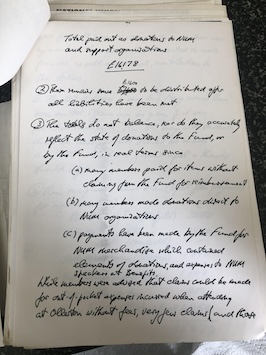 Total paid out as donations to NUM
and support organisations
£14178
£1200
② There remains some to be distributed after
all liabilities have been met
③ The totals do not balance, nor do they accurately
reflect the state of donations to the Fund, or
by the Fund, in real terms since
(a) many members paid for items without
claiming from the Fund for reimbursement
(b) many members made donations direct to
NUM organisations
(c) payments have been made by the Fund for
NUM merchandise which contained
elements of donations, and expenses to NUM
speakers at Benefits.
While members were advised that claims could be made
for out-of-pocket expenses incurred when attending
at Ollerton without fees, very few claims (and those